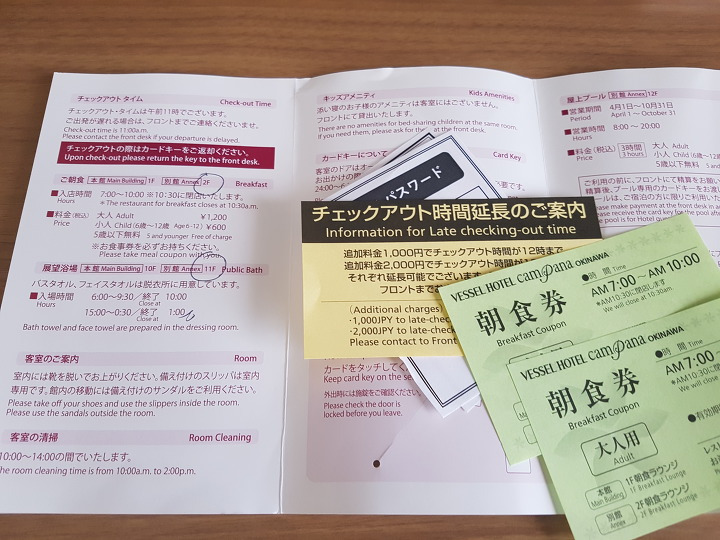 チェックアウト タイム Check-out Time
チェックアウト・タイムは午前11時でございます。
ご出発が遅れる場合は、フロントまでご連絡くださいませ。
Check-out time is 11:00a.m.
Please contact the front desk if your departure is delayed.
チェックアウトの際はカードキーをご返却ください。
Upon check-out please return the key to the front desk.
ご朝食 本館 Main Building 1F 別館 Annex 2F Breakfast
■入店時間 7:00〜10:00 ※10:30に閉店いたします。
Hours * The restaurant for breakfast closes at 10:30a.m.
■料金(税込) 大人 Adult ¥1,200
Price 小人 Child (6歳〜12歳 Age 6-12) ¥600
5歳以下無料 5 and younger Free of charge
※お食事券を必ずお持ちください。
Please take meal coupon with you.
展望浴場 本館 Main Building 10F 別館 Annex 11F Public Bath
バスタオル、フェイスタオルは脱衣所に用意しています。
■入場時間 6:00〜9:30／終了 10:00
Hours Close at
15:00〜0:30／終了 1:00
Close at
Bath towel and face towel are prepared in the dressing room.
客室のご案内 Room
室内には靴を脱いでお上がりください。備え付けのスリッパは室内
専用です。館内の移動には備え付けのサンダルをご利用ください。
Please take off your shoes and use the slippers inside the room.
Please use the sandals outside the room.
客室の清掃 Room Cleaning
10:00〜14:00の間でいたします。
The room cleaning time is from 10:00a.m. to 2:00p.m.
キッズアメニティ Kids Amenities
添い寝のお子様のアメニティは客室にはございません。
フロントにて貸出いたします。
There are no amenities for bed-sharing children at the same room.
if you need them, please ask for at the front desk.
カードキーについて Card Key
客室のドアはオー
お出かけの際
24:00〜6
パスワード
チェックアウト時間延長のご案内
Information for Late checking-out time
追加料金1,000円でチェックアウト時間が12時まで
追加料金2,000円でチェックアウト時間が
それぞれ延長可能でござい
フロントまで
(Additional charges)
・1,000JPY to late-chec
・2,000JPY to late-check
Please contact to Front
カードをタッチして
Keep card key on the se
外出時には施錠をご確認ください。
Please check the door is
locked before you leave.
屋上プール 別館 Annex 12F
■営業期間 4月1日〜10月31日
Period April 1 〜 October 31
■営業時間 8:00 〜 20:00
Hours
■料金(税込) 3時間 3 hours 大人 Adult
Price 小人 Child (6歳〜12
5歳以下無料 5 and you
ご利用の前に、フロントにて精算をお願い
精算後、プール専用のカードをお渡し
プールは、ご宿泊の方に限りご利用
Please make payment at the front
Please receive the card for the pool
The pool is for Hotel gues
VESSEL HOTEL campana OKINAWA
朝食券
Breakfast Coupon
●時間 Time
AM 7:00 〜 AM 10:00
※AM10:30に閉店します
We will close at 10:30am.
VESSEL HOTEL campana OKINAWA
朝食券
Breakfast Coupon
●時間 Time
AM 7:00
※AM10:30
We will close
大人用
Adult
●有効期
本館 Main 1F 朝食ラウンジ
1F Breakfast Lounge
別館 Annex 2F 朝食ラウンジ
2F Breakfast Lounge